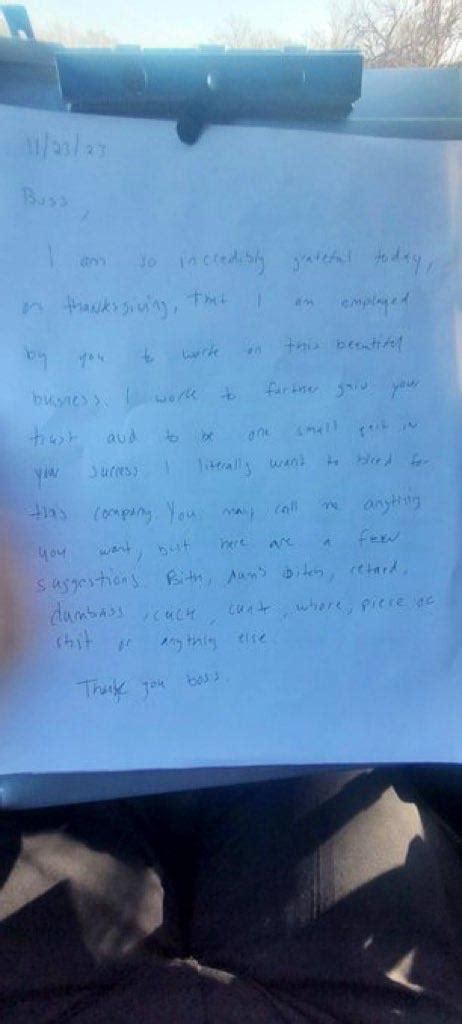 11/23/23
Boss,
I am so incredibly grateful today,
on thanksgiving, that I am employed
by you to work on this beautiful
business. I work to further gain your
trust and to be one small part in
your success. I literally want to bleed for
this company. You may call me anything
you want, but here are a few
suggestions. Bith, dumb bitch, retard,
dumbass, cuck, cunt, whore, piece of
shit or anything else.
Thank you boss.